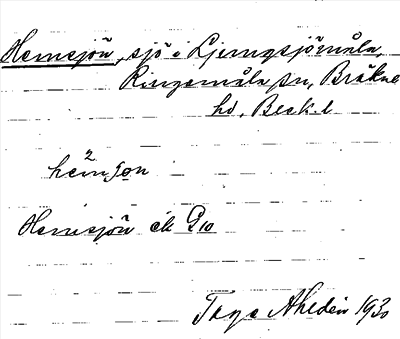 Hemsjön, sjö i Ljungsjömåla,
Ringamåla sn, Bräkne
hd, Blek. l
2
hemson
Hemsjön ek G10
Tage Ahldén 1930